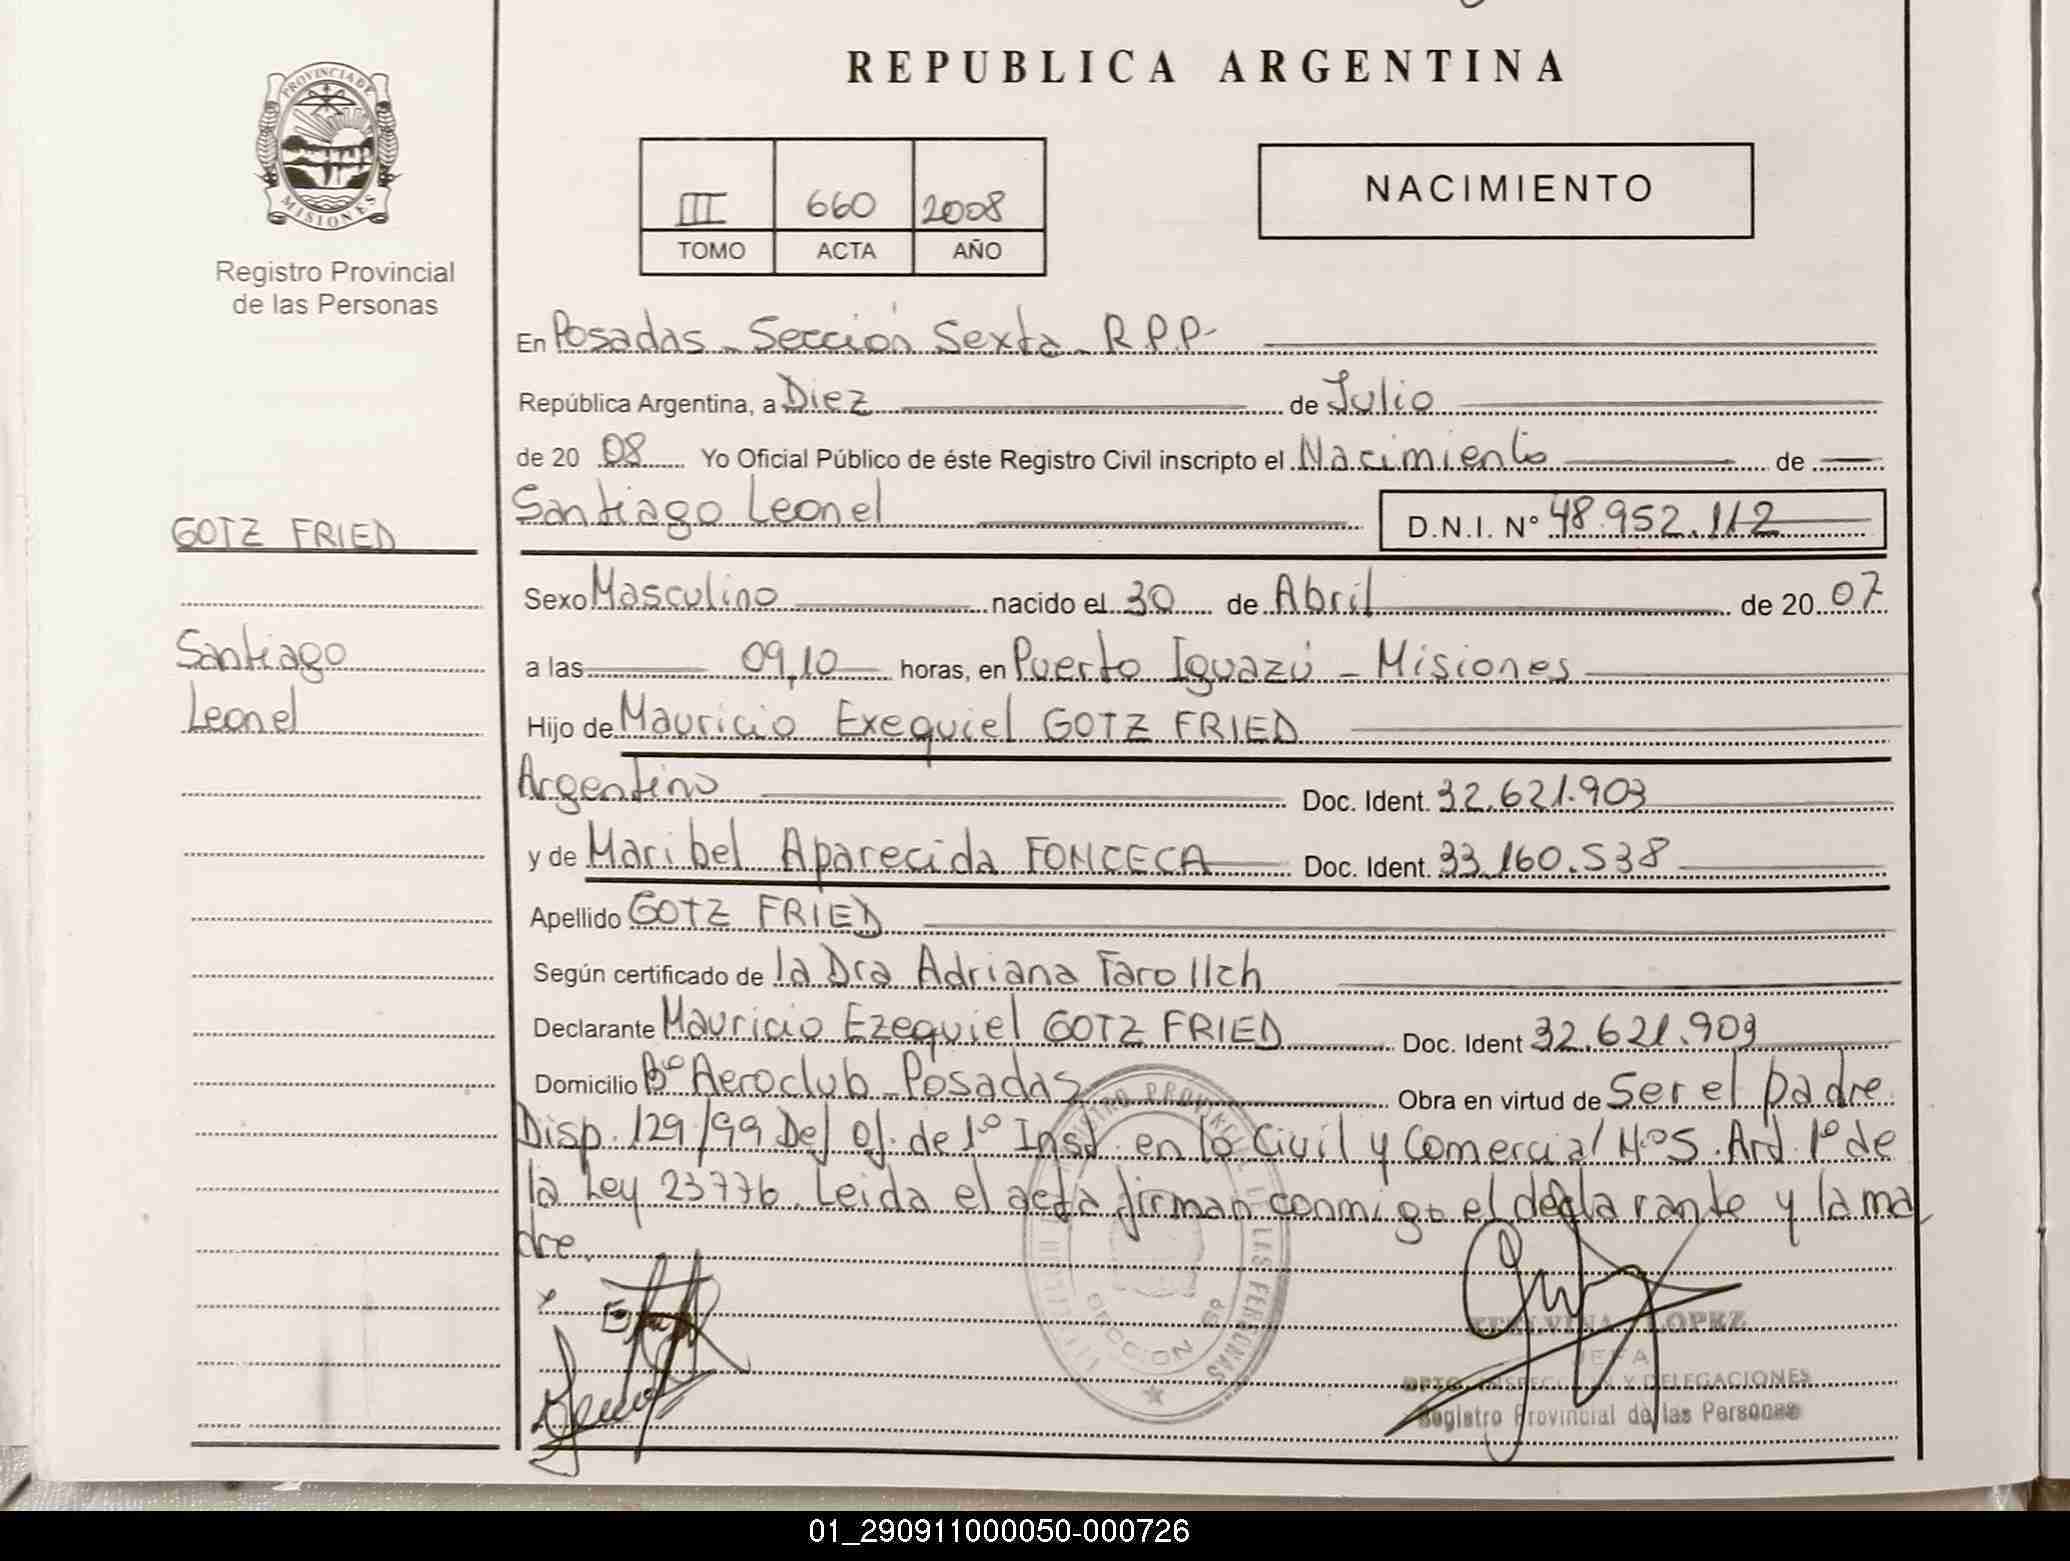 REPUBLICA ARGENTINA
PROVINCIA DE
MISIONES
Registro Provincial
de las Personas
III 660 2008
TOMO ACTA AÑO
NACIMIENTO
En Posadas - Sección Sexta - R.P.P-
República Argentina, a Diez de Julio
de 20 08 Yo Oficial Público de éste Registro Civil inscripto el Nacimiento de
Santiago Leonel D.N.I. N° 48.952.112
GOTZ FRIED
Santiago
Leonel
Sexo Masculino nacido el 30 de Abril de 20 07
a las 09,10 horas, en Puerto Iguazú - Misiones
Hijo de Mauricio Exequiel GOTZ FRIED
Argentino Doc. Ident. 32.621.903
y de Maribel Aparecida FONCECA Doc. Ident. 33.160.538
Apellido GOTZ FRIED
Según certificado de la Dra Adriana
Declarante Mauricio Ezequiel GOTZ FRIED Doc. Ident 32.621.903
Domicilio B° Aeroclub - Posadas Obra en virtud de Ser el padre
Disp. 129/99 Del de 1° Inst. en lo Civil y Comercial N°5. Art. 1° de
la Ley 23776. Leida el acta firman conmigo el declarante y la ma
dre.
LOPEZ
JEFA
DPTO. INSPECCION Y DELEGACIONES
Registro Provincial de las Personas
01_290911000050-000726